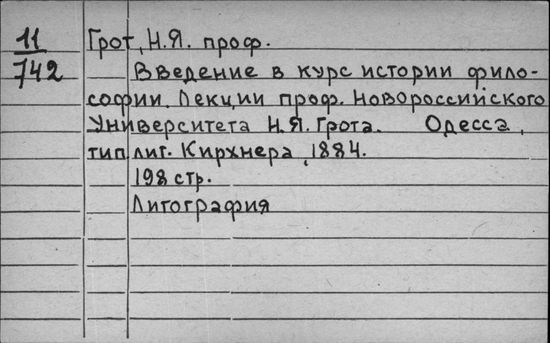 11
742
Грот, Н.Я. проф.
Введение в курс истории фило-
софии. Лекции проф. Новороссийского
Университета Н.Я. Грота. Одесса,
тип. лит. Кирхнера, 1884.
198 стр.
Литография